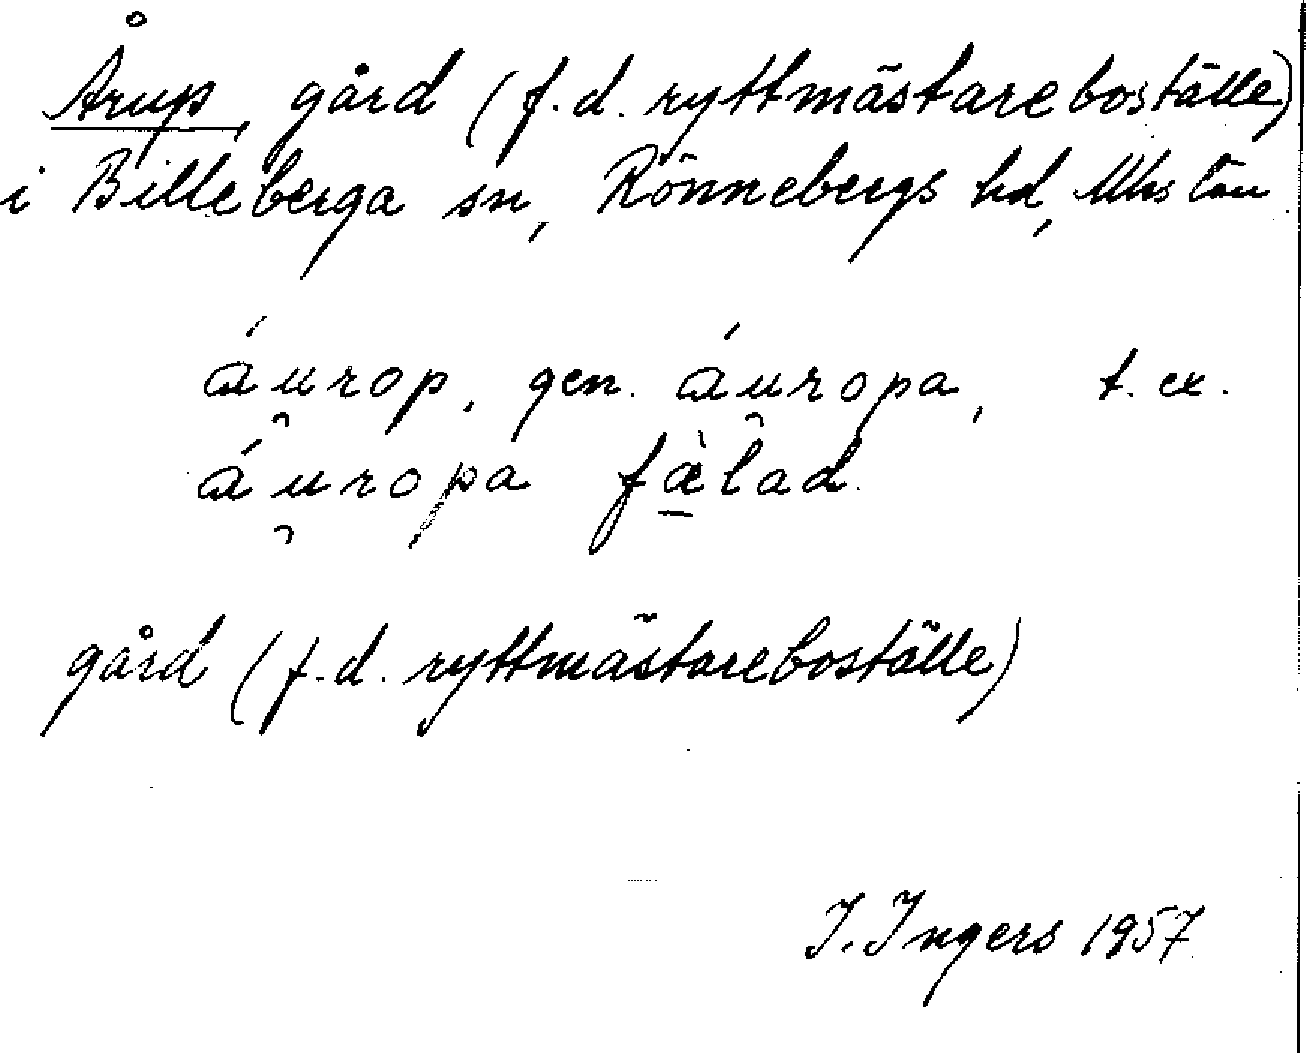 Årup, gård (f.d. ryttmästareboställe)
i Billeberga sn, Rönnebergs hd, Mhs län
áu̯rop, gen. áu̯ropa, t.ex.
áu̯ropa fæ̱̀lad.
gård (f.d. ryttmästareboställe)
I. Ingers 1957